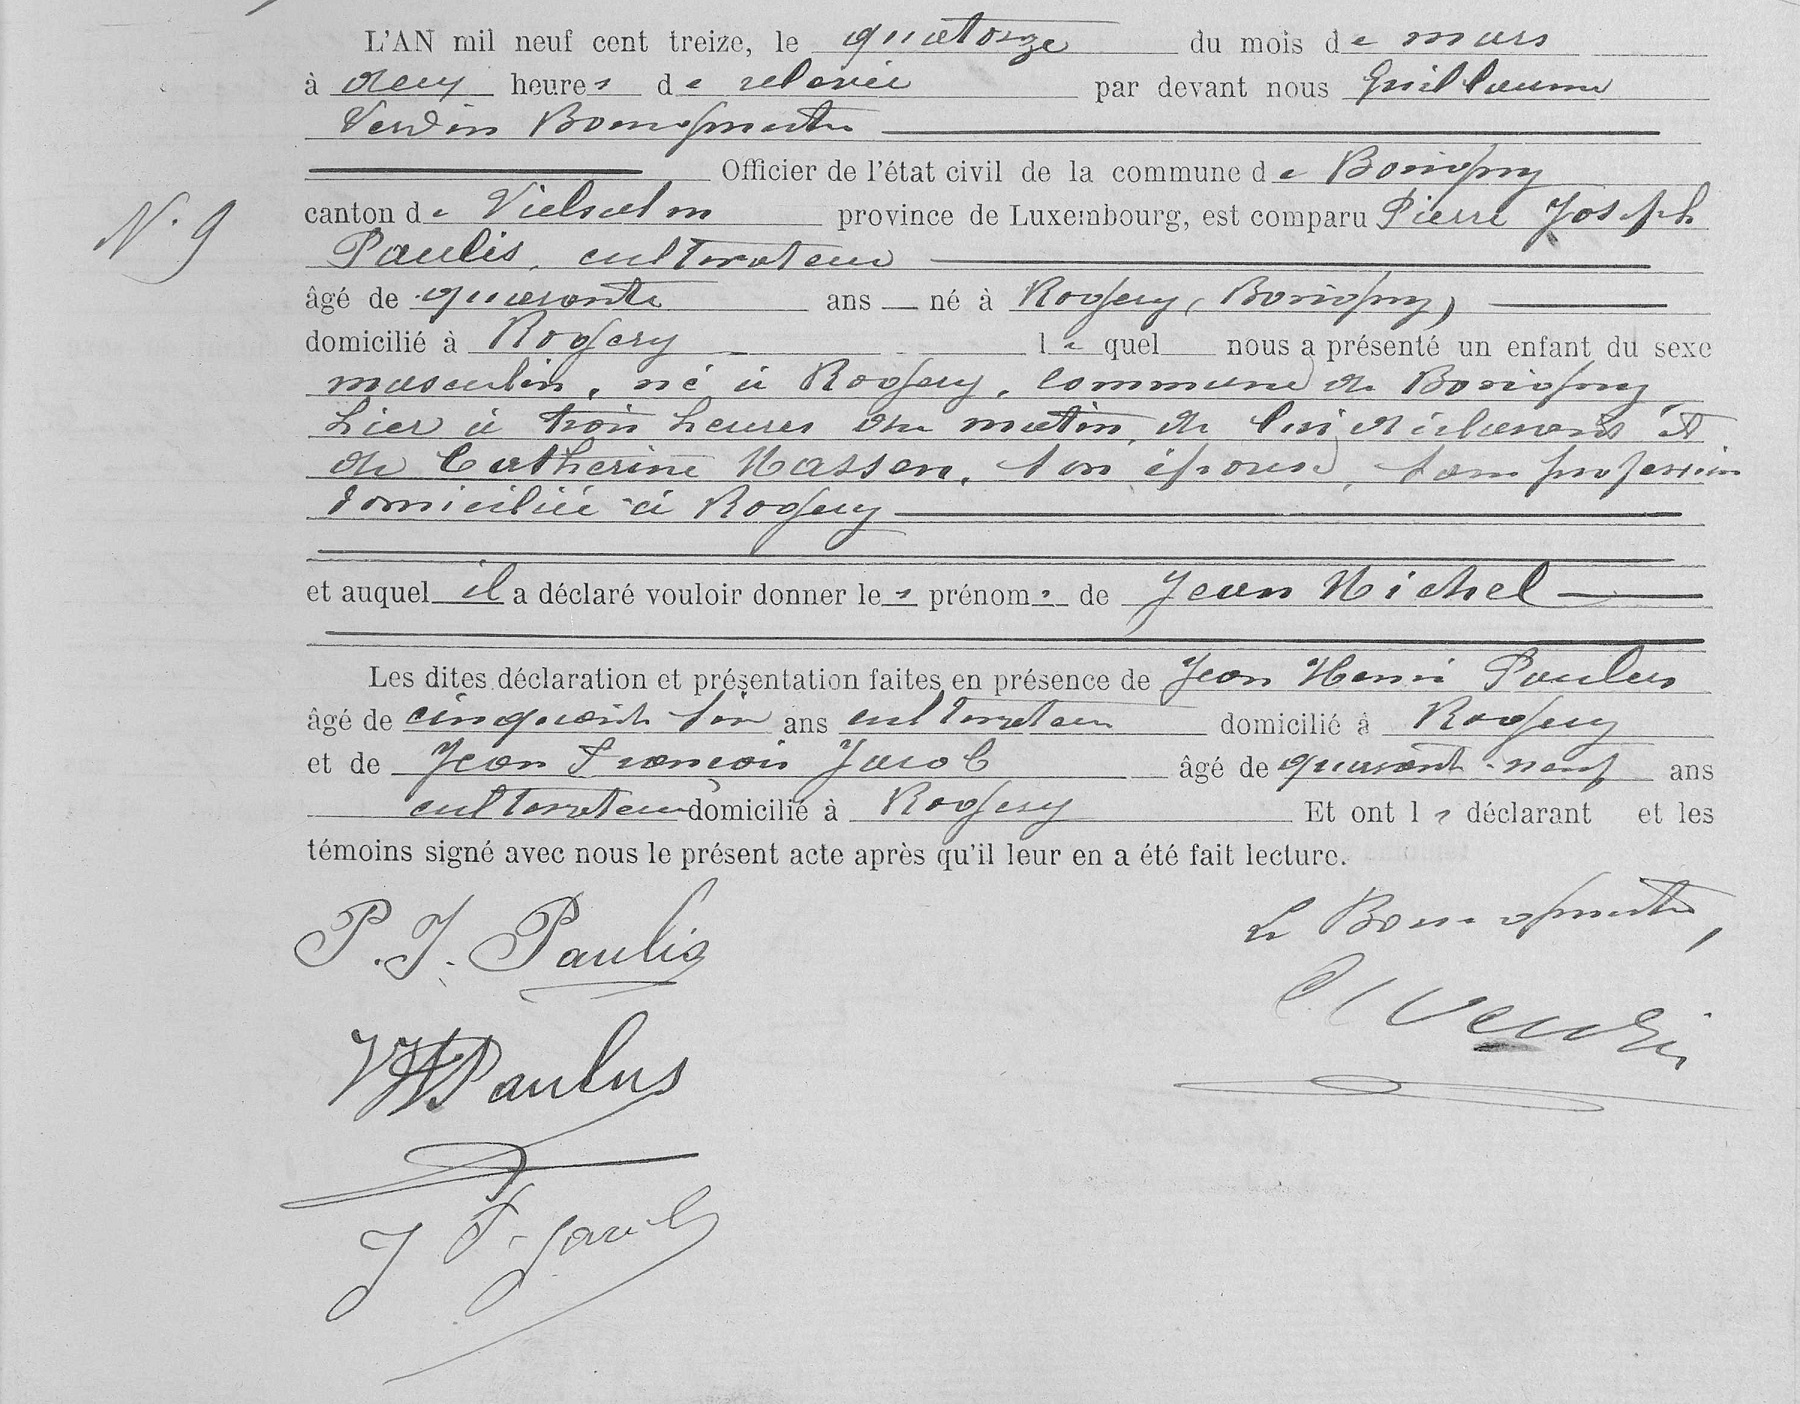 L'AN mil neuf cent treize, le quatorze du mois de mars
à deux heures de relevée par devant nous Guillaume
Verdin Bourgmestre
Officier de l'état civil de la commune de Bovigny
N. 9
canton de Vielsalm province de Luxembourg, est comparu Pierre Joseph
Paulis, cultivateur
âgé de quarante ans né à Rogery (Bovigny)
domicilié à Rogery lequel nous a présenté un enfant du sexe
masculin, né à Rogery, commune de Bovigny,
hier à trois heures du matin, de lui déclarant et
de Catherine Massen, son épouse, sans profession
domiciliée à Rogery
et auquel il a déclaré vouloir donner les prénoms de Jean Michel
Les dites déclaration et présentation faites en présence de Jean Henri Paulus
âgé de cinquante six ans cultivateur domicilié à Rogery
et de Jean François Jacob âgé de quarante-neuf ans
cultivateur domicilié à Rogery Et ont le déclarant et les
témoins signé avec nous le présent acte après qu'il leur en a été fait lecture.
P. J. Paulis
Le Bourgmestre,
Verdin
JH Paulus
J F. Jacob